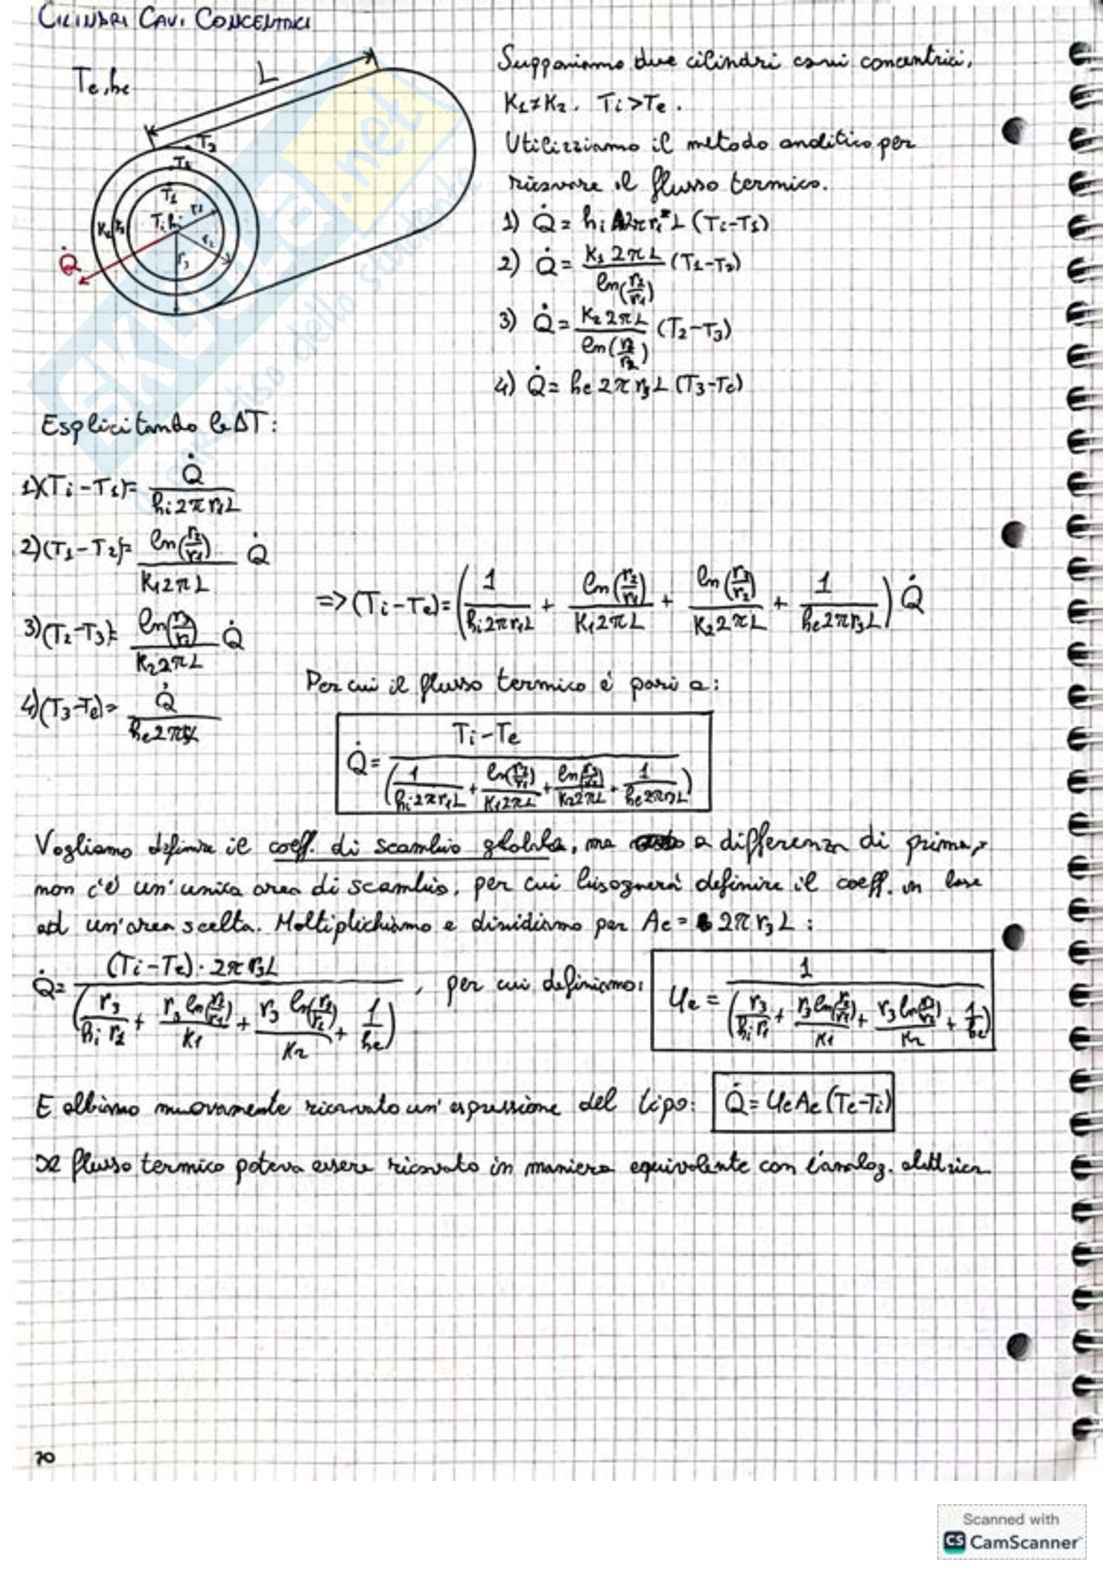 CILINDRI CAVI CONCENTRICI
Te, he
L
T3
T2
T1
Ti, hi
r1
r2
r3
K2
K1
Q̇
Supponiamo due cilindri cavi concentrici,
K1≠K2. Ti>Te.
Utilizziamo il metodo analitico per
ricavare il flusso termico.
1) Q̇ = hi 2πr1 L (Ti-T1)
2) Q̇ = K1 2πL / ln(r2/r1) (T1-T2)
3) Q̇ = K2 2πL / ln(r3/r2) (T2-T3)
4) Q̇ = he 2πr3 L (T3-Te)
Esplicitando le ΔT:
1) (Ti-T1) = Q̇ / hi 2πr1L
2) (T1-T2) = ln(r2/r1) / K1 2πL Q̇
3) (T2-T3) = ln(r3/r2) / K2 2πL Q̇
4) (T3-Te) = Q̇ / he 2πr3L
=> (Ti-Te) = (1 / hi 2πr1L + ln(r2/r1) / K1 2πL + ln(r3/r2) / K2 2πL + 1 / he 2πr3L) Q̇
Per cui il flusso termico è pari a:
Q̇ = Ti-Te / (1 / hi 2πr1L + ln(r2/r1) / K1 2πL + ln(r3/r2) / K2 2πL + 1 / he 2πr3L)
Vogliamo definire il coeff. di scambio globale, ma a differenza di prima,
non c'è un'unica area di scambio, per cui bisognerà definire il coeff. in base
ad un'area scelta. Moltiplichiamo e dividiamo per Ae = 2πr3L :
Q̇ = (Ti-Te)·2πr3L / (r3 / hi r1 + r3 ln(r2/r1) / K1 + r3 ln(r3/r2) / K2 + 1 / he) , per cui definiamo: Ue = 1 / (r3 / hi r1 + r3 ln(r2/r1) / K1 + r3 ln(r3/r2) / K2 + 1 / he)
E abbiamo nuovamente ricavato un'espressione del tipo: Q̇ = Ue Ae (Te-Ti)
Il flusso termico poteva essere ricavato in maniera equivalente con l'analog. elettrica
70
Scanned with
CS CamScanner